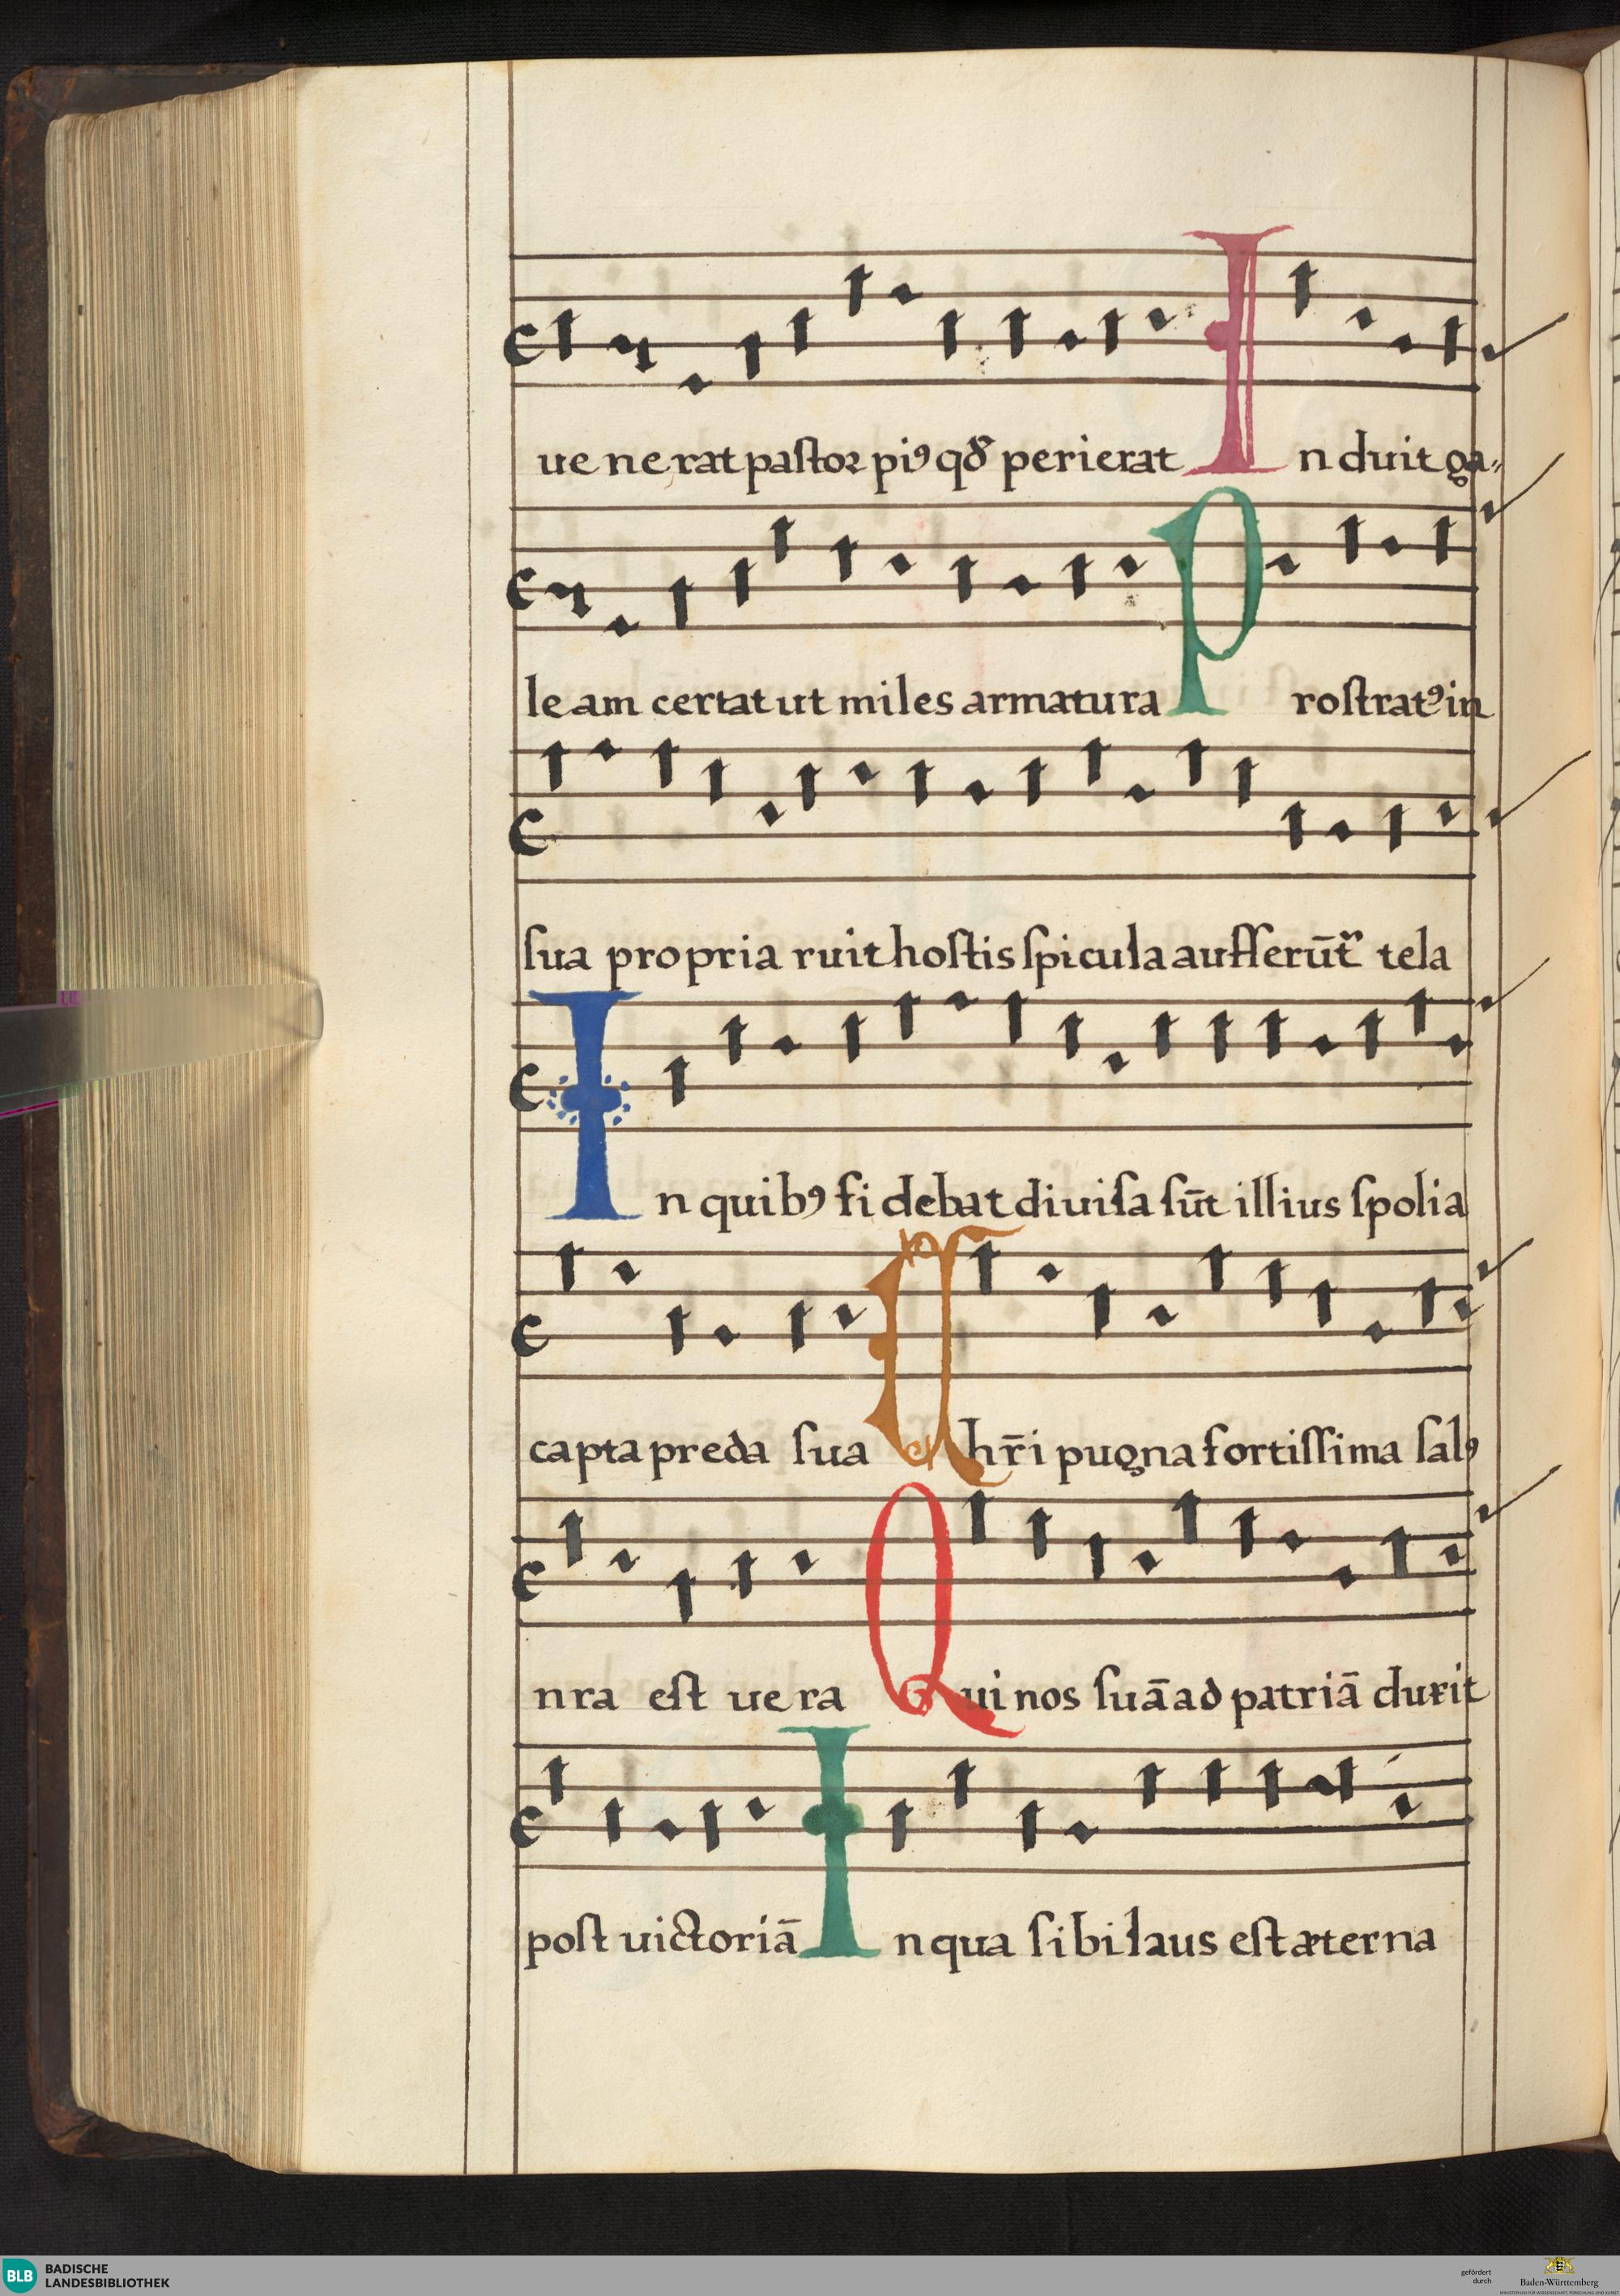 ue ne rat paſtor piꝰ qď perierat In duit ga⸗
le am certat ut miles armatura Proſtratꝰ in
ſua propria ruit hoſtis ſpicula aufferūtᷣ tela
In quibꝰ fi debat diuiſa ſūt illius ſpolia
capta preda ſua Chr̄i pugna fortiſſima ſalꝰ
nra eſt uera Qui nos ſuā ad patriā duxit
poſt uictoriā In qua ſibi laus eſt æterna
BLB BADISCHE
LANDESBIBLIOTHEK
gefördert
durch
Baden-Württemberg